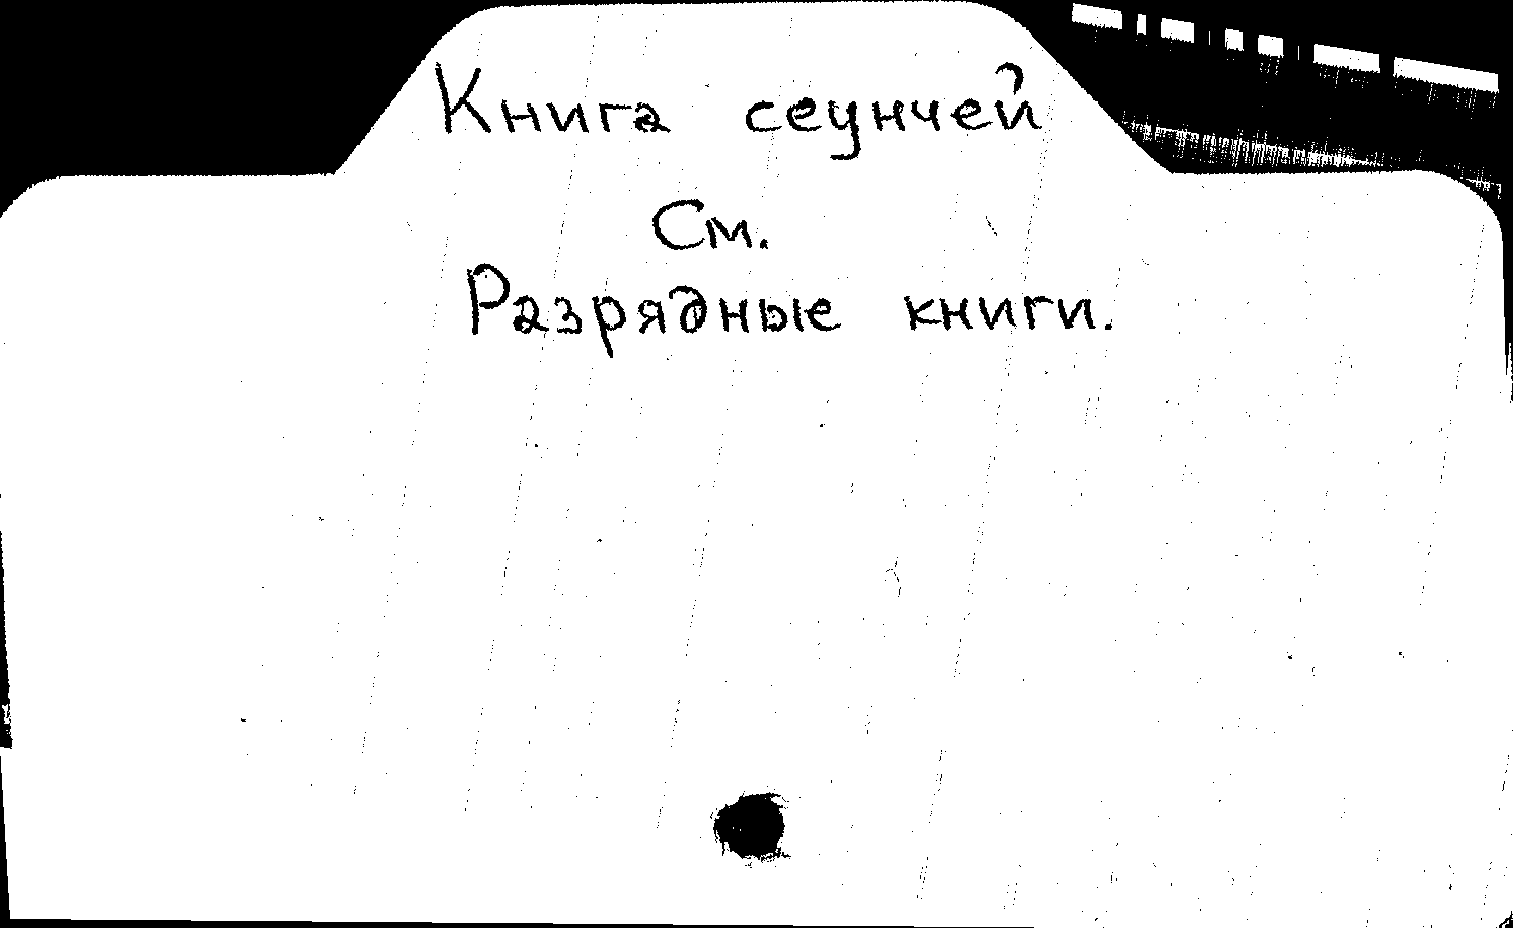 Книга сеунчей
См.
Разрядные книги.